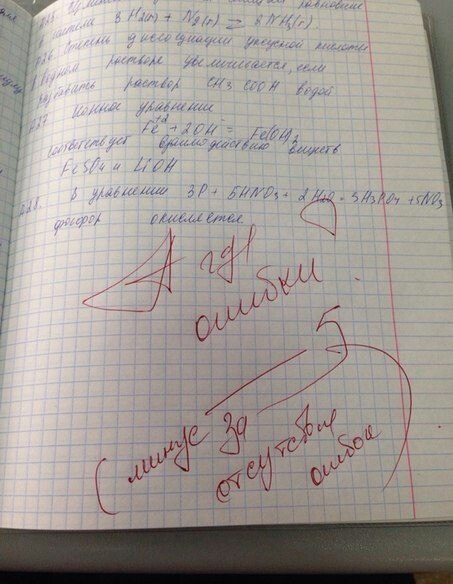 равновесие
3H2(г) + N2(г) = 2NH3(г).
Д26 Степень диссоциации уксусной кислоты
в водном растворе увеличивается, если
разбавить раствор CH3COOH водой
Д27 Ионное уравнение
Fe+2 + 2OH- = Fe(OH)2
соответствует взаимодействию веществ
FeSO4 и LiOH
Д28 В уравнении 3P + 5HNO3 + 2H2O = 3H3PO4 + 5NO
фосфор окисляется.
А где
ошибки
?
5
(минус за
отсутствие
ошибок)